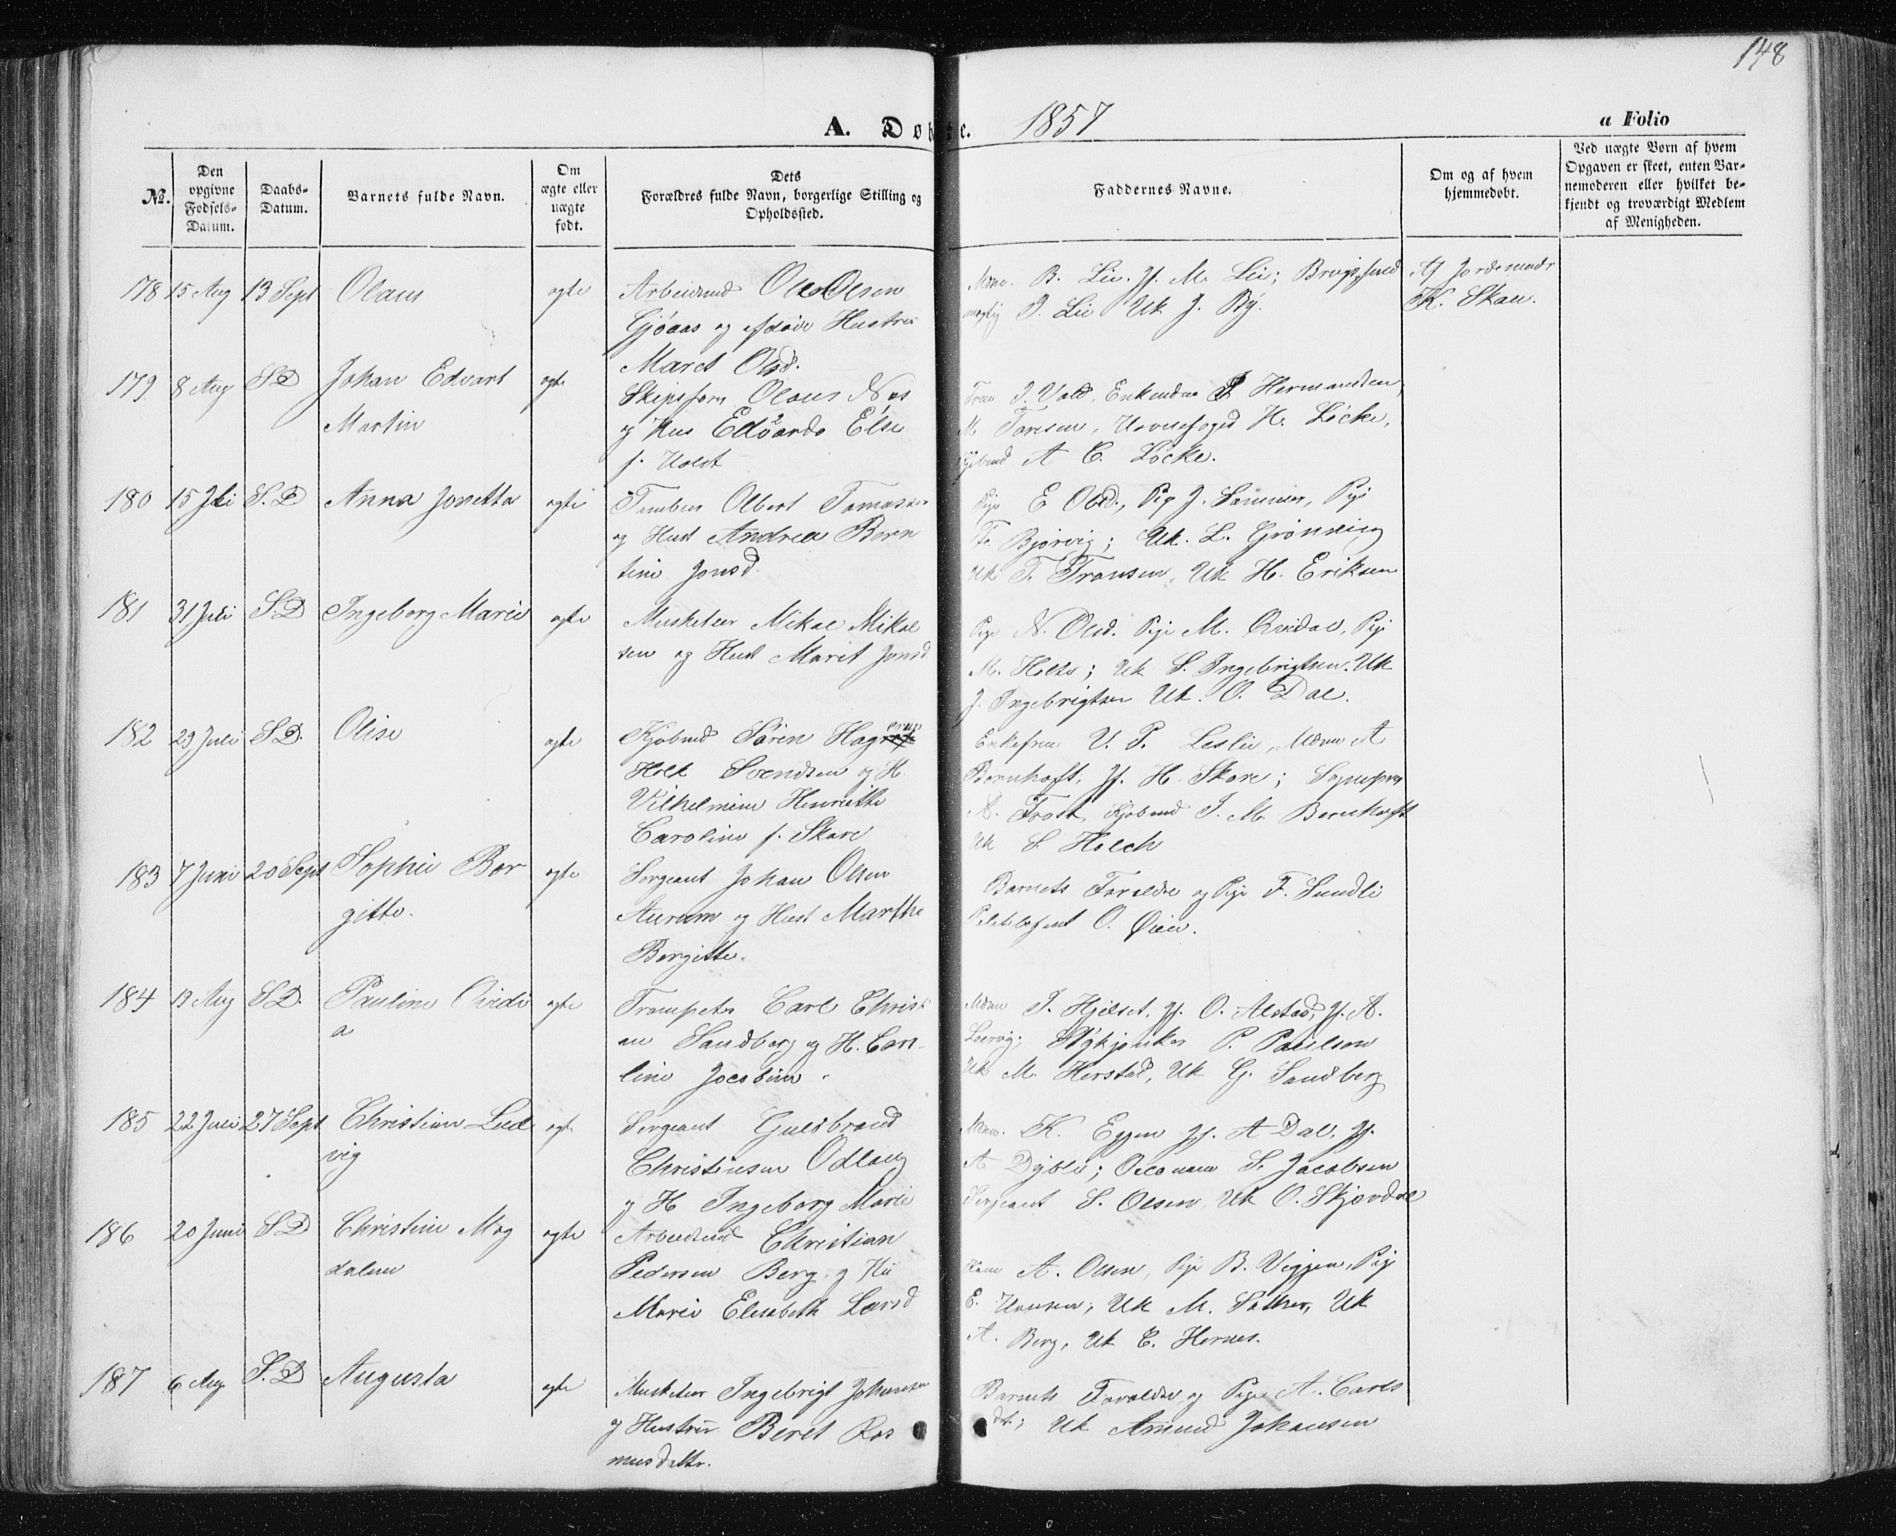 148
A. Døbte. 1857
a Folio
No.
Den opgivne Fødsels-Datum.
Daabs-Datum.
Barnets fulde Navn.
Om ægte eller uægte født.
Dets Forældres fulde Navn, borgerlige Stilling og Opholdssted.
Faddernes Navne.
Om og af hvem hjemmedøbt.
Ved uægte Born af hvem Opgaven er skeet, enten Barnemoderen eller hvilket bekjendt og troværdigt Medlem af Menigheden.
178 15 Aug 13 Sept Olaus ægte Arbeidsmd Ole Olsen
Gjøaas og Hustru
Maret Olsd.
B. Lie. Jf. M. Lie;
P. Lie Uk J. By.
Af Jordemodr
K. Skau.
179 8 Aug S.D Johan Edvart
Martin
ægte Skipsfører Olaus Næs
og Hus Edvarda Else
f. Holst
J. Vold, Hermansen,
M. Toresen, Havnefoged H. Løcke,
A C. Løcke.
180 15 Juli S.D Anna Jonetta ægte Tambur Olbert Tomassen
og Hust Andrea Bern
tine Jonsd.
Pige E Olsd., Pig J. Sommer, Pige
Bjørvig; Uk. L. Grønning
Uk T. Fransen, Uk H. Eriksen
181 31 Juli S.D Ingeborg Marie ægte Musketeer Mikal Mikal
sen og Hust Maret Jonsd
Pige N. Olsd. Pige M. Qvidal, Pige
M. Holte; Uk S. Ingebrigtsen. Uk
J. Ingebrigtsen Uk. O. Dal.
182 29 Juli S.D. Olise ægte Kjøbmd Søren Hag
Holk Svendsen og H.
Vilhelmine Henriette
Caroline f. Skare
Enkefrue U. P. Leslie, Mdme A
Bernhoft, Jf. H. Skare; Sognepræ
A. Frost, Kjøbmd J. M. Bernhoft
Uk S Holck
183 7 Juni 20 Sept Sophie Ber
gitte.
ægte Sergeant Johan Olsen
Aurum og Hust Marthe
Bergitte.
Barnets Forældre og Pige F. Sundli
O. Øien.
184 13 Aug S.D. Pauline Ovidi
a
ægte Trompeter Carl Christi
an Sandberg og H. Caro-
line Jocobine.
Mdme J. Hjelset, Jf. O. Alstad, Jf. A.
Leirvig; P. Paulsen
Uk M. Herstad, Uk G. Sandberg
185 22 Juli 27 Sept Christian Lud
vig
ægte Sergeant Guldbrand
Christensen Odlaug
og H Ingeborg Marie
Mdme. K. Eggen Jf. A Dal, Jf.
A Dybli; Oeconom S. Jacobsen
Sergeant S. Olsen, Uk O. Skjøvdal
186 20 Juni S.D Christine Mag
dalene
ægte Arbeidsmd Christian
Pedersen Berg og Hu
Marie Elisabeth Larsd
Kone A. Olsen, Pige B. Viggen, Pig
E. Hansen; Uk M. Sather, Uk
A. Berg, Uk C. Hernes.
187 6 Aug S.D Augusta ægte Musketeer Ingebrigt Johansen
og Hustru Beret Ras
musdatter.
Barnets Forældre og Pige A. Carls
dt; Uk Amund Johansen